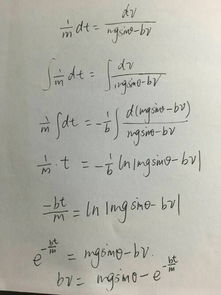 1/m dt = dv/(mgsinθ-bv)
∫ 1/m dt = ∫ dv/(mgsinθ-bv)
1/m ∫ dt = -1/b ∫ d(mgsinθ-bv)/(mgsinθ-bv)
1/m · t = -1/b ln|mgsinθ-bv|
-bt/m = ln|mgsinθ-bv|
e^(-bt/m) = mgsinθ-bv.
bv = mgsinθ-e^(-bt/m)